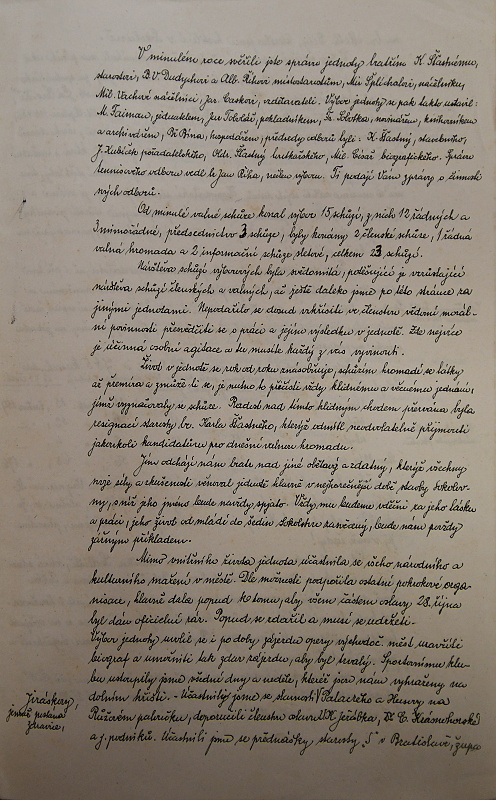 V minulém roce svěřili jste správu jednoty bratřím K. Šťastnému,
starostovi, B. V. Dudychovi a Alb. Říhovi místostarostům, Mil. Šplíchalovi, náčelníku,
Mil. Vachové náčelnici, Jar. Caskovi, vzdělavateli. Výbor jednoty se pak takto ustavil:
M. Taiman, jednatelem, Jar. pokladníkem, Fr. Sobotka, novinářem, knihovníkem
a archivářem, Ot. Bína, hospodářem, předsedy odborů byli: K. Šťastný, stavebního,
J. Kubíček pořadatelského, Oldř. Šťastný loutkářského, Mil. Císař biografického. Správu
tennisového odboru vedl br. Jan Říha, nečlen výboru. Ti podají Vám zprávy o činnosti
svých odborů.
Od minulé valné schůze konal výbor 15 schůzí, z nich 12 řádných a
3 mimořádné, předsednictvo 3 schůze, byly konány 2 členské schůze, 1 řádná
valná hromada a 2 informační schůze sletové, celkem 23 schůzí.
Návštěva schůzí výborových byla svědomitá, potěšující je vzrůstající
návštěva schůzí členských a valných, ač ještě daleko jsme po této stránce za
jinými jednotami. Nepodařilo se dosud vzkřísiti ve členstvu vědomí morál-
ní povinnosti přesvědčiti se o práci a jejím výsledku v jednotě. Zde nejvíce
je účinná osobní agitace a tu musíte každý z vás vyvinouti.
Život v jednotě se rok od roku znásobňuje, schůzím hromadí se látky
až přemíra a zmůže-li se, je nutno to přičísti vždy klidnému a věcnému jednání,
jímž vyznačovaly se schůze. Radost nad tímto klidným chodem přervána byla
resignací starosty br. Karla Šťastného, kterýž odmítl neodvolatelně přijmouti
jakoukoli kandidaturu pro dnešní valnou hromadu.
Jím odchází nám bratr nad jiné obětavý a zdatný, kterýž všechny
svoje síly a zkušenosti věnoval jednotě hlavně v nejhorečnější době stavby sokolov-
ny, s níž jeho jméno bude navždy spjato. Vždy mu budeme vděčni za jeho lásku
a práci, jeho život od mládí do šedin Sokolstvu zasvěcený, bude nám povždy
zářným příkladem.
Mimo vnitřního života jednota účastnila se všeho národního a
kulturního snažení v městě. Dle možnosti podpořila ostatní pokrokové orga-
nisace, hlavně dala popud k tomu, aby všem částem oslavy 28. října
byl dán oficielní ráz. Popud se zdařil a musí se udržeti.
Výbor jednoty uvolil se i po dobu zájezdu opery východoč. měst uzavříti
biograf a umožniti tak zdar zájezdu, aby byl trvalý. Sportovnímu klu-
bu ustoupily jsme všední dny a neděle, kteréž jsou nám vyhrazeny na
dolním hřišti. - Účastnily jsme se slavností Palackého a Husovy na
Jiráskovy,
jemuž poslána
zdravice,
Růžovém paloučku, doporučili členstvu oslavu Jeřábka, El. Krásnohorské
a j. podniků. Účastnili jsme se přednášky starosty "S" v Bratislavě, župa